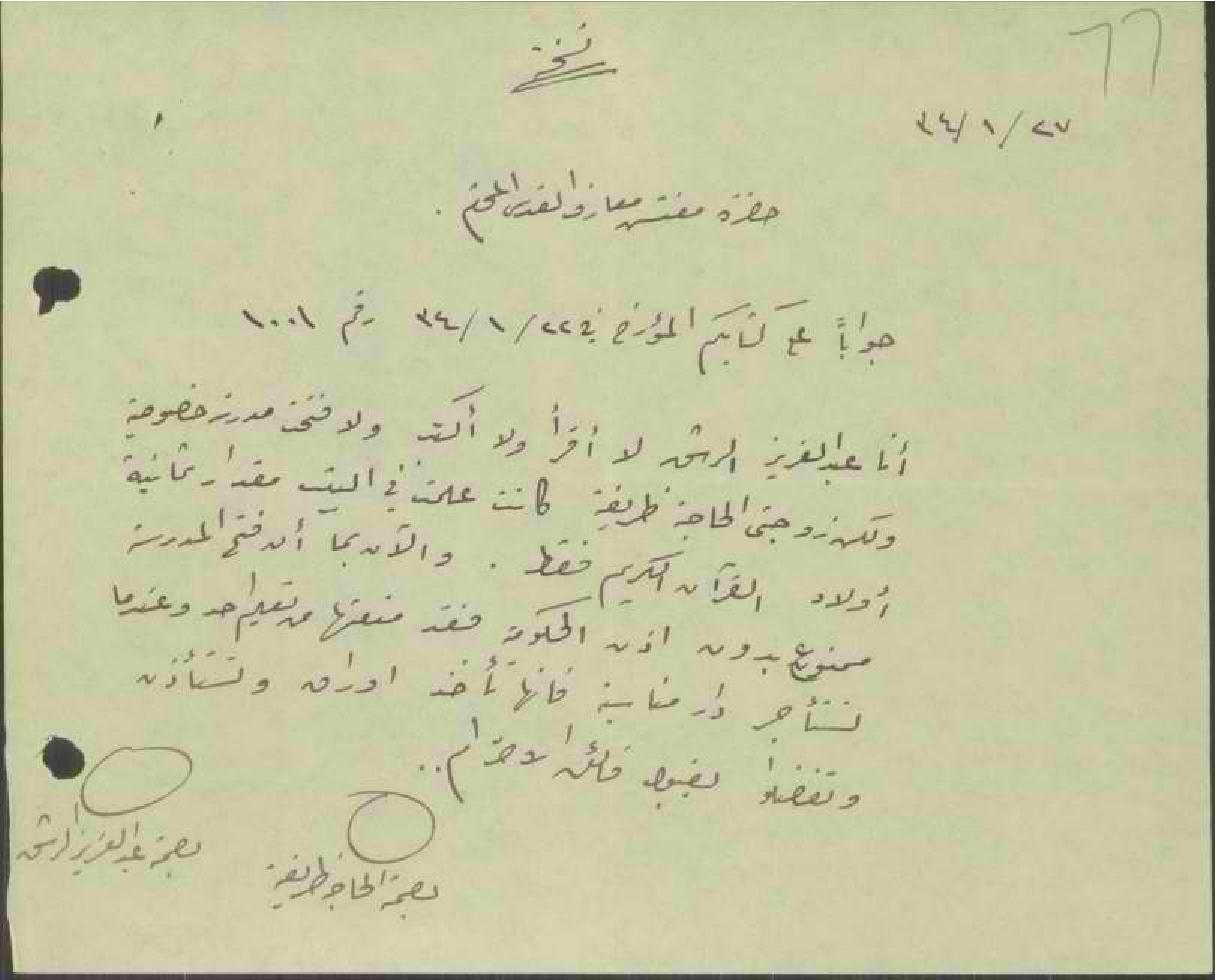 نسخة
٦٦
٢٧/١/٣٤
حضرة مفتش معارف القدس المحترم .
جواباً على كتابكم المؤرخ في ٢٢/١/٣٤ رقم ١٠٠١
أنا عبدالعزيز الرشق لا أقرأ ولا أكتب ولا فتحت مدرسة خصوصية
ولكن زوجتي الحاجة ظريفة كانت علمت في البيت مقدار ثمانية
أولاد القرآن الكريم فقط . والآن بما أن فتح المدرسة
ممنوع بدون اذن الحكومة فقد منعتها من تعليم احد وعندما
تستأجر دار مناسبة فانها تأخذ اوراق وتستأذن
وتفضلوا بقبول فائق الاحترام ..
بصمة عبدالعزيز الرشق
بصمة الحاجة ظريفة